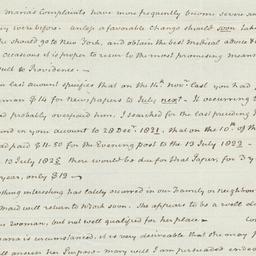 Maria's Complaints have more frequently become severe and
they were before. Unless a favorable change should soon take
she should go to New York, and obtain the best Medical advice &
occasions it is proper to resort to the most promising means
well to Providence.—
last account specifies that on the 7th Novr last you had
$14 for Newspapers to July next. It occurring t
had probably overpaid him, I searched for the last preceding
and in your account to 28 Decr 1821, that on the 10th of th
had paid $11.50 for the Evening post to the 13 July 1822—
13 July 1825 there would be due for that Paper, for 3 y
year, only $12—
nothing interesting has lately occurred in our Family or Neighbour
maid will return to Work soon. She appears to be a well di
woman, but not well qualified for her place.—
is circumstanced, it is very desirable that she may f
answer her Purpose. Mary will I am persuaded endea